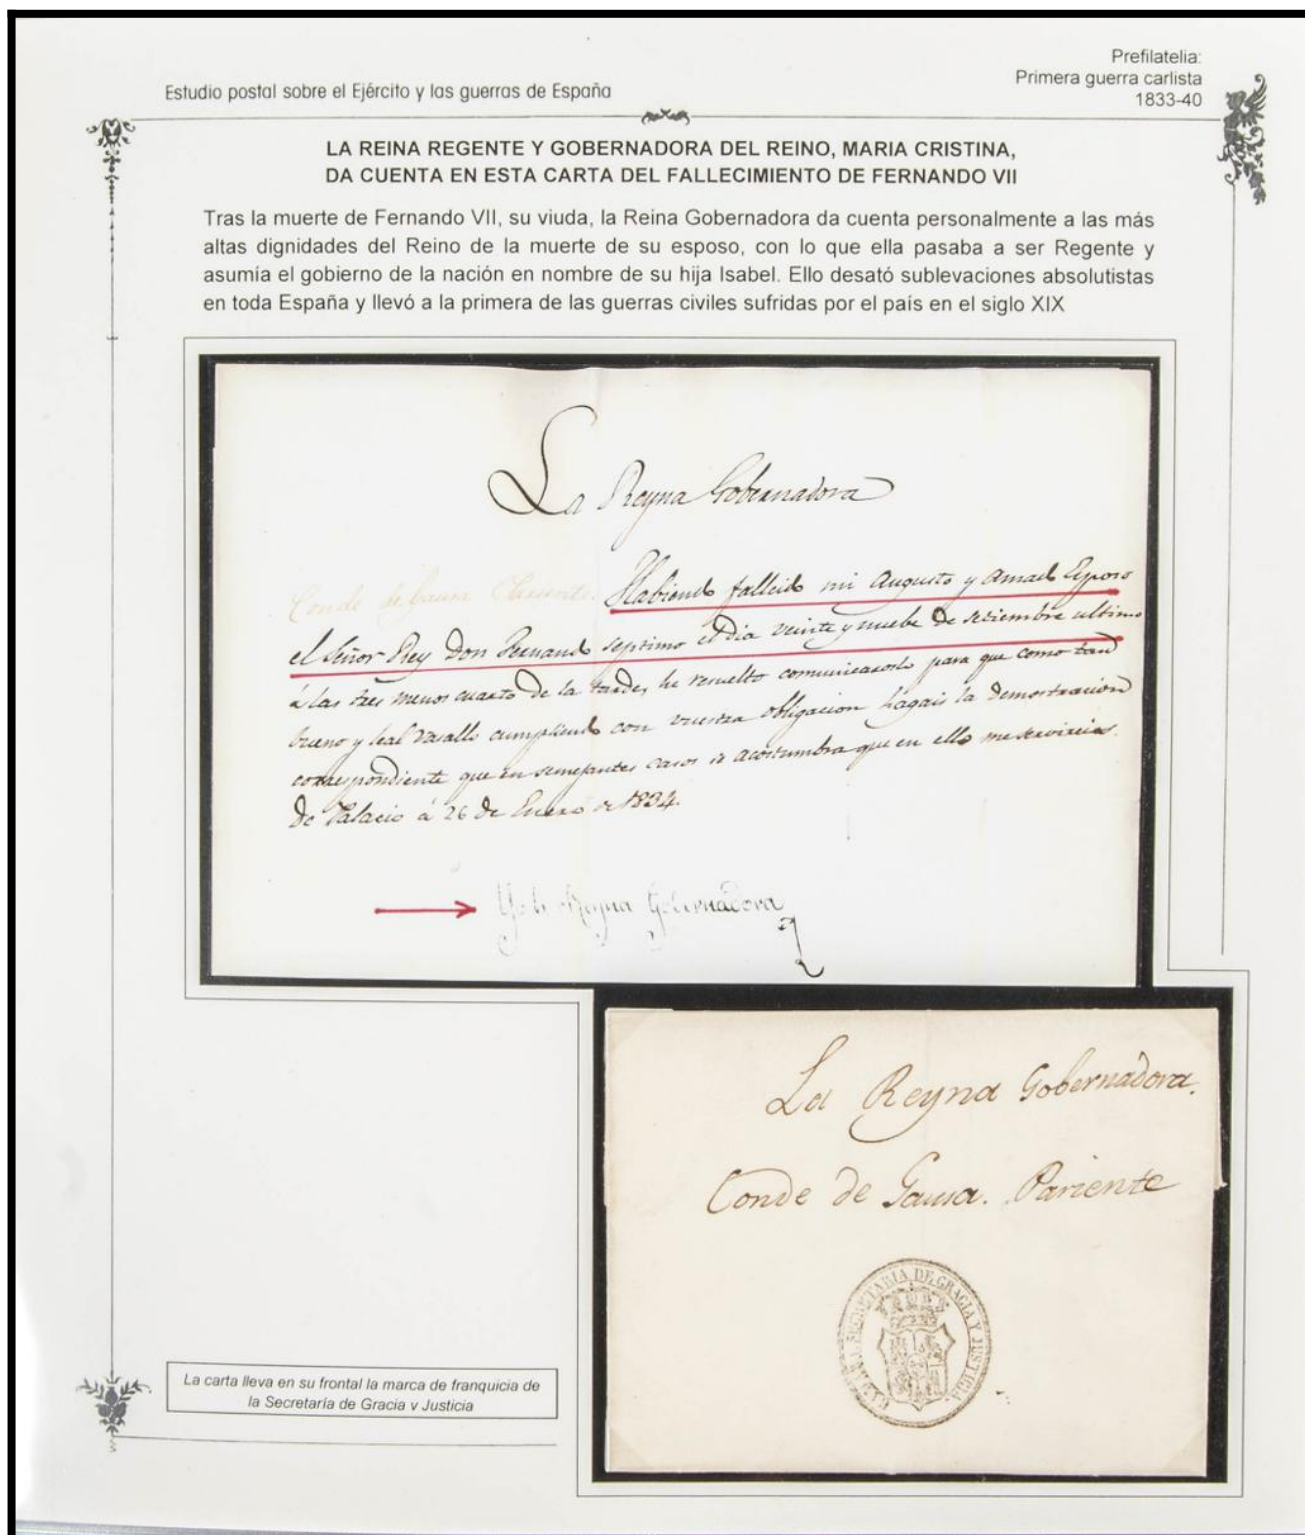 Prefilatelia:
Estudio postal sobre el Ejército y las guerras de España
Primera guerra carlista
1833-40
LA REINA REGENTE Y GOBERNADORA DEL REINO, MARIA CRISTINA,
DA CUENTA EN ESTA CARTA DEL FALLECIMIENTO DE FERNANDO VII
Tras la muerte de Fernando VII, su viuda, la Reina Gobernadora da cuenta personalmente a las más
altas dignidades del Reino de la muerte de su esposo, con lo que ella pasaba a ser Regente y
asumía el gobierno de la nación en nombre de su hija Isabel. Ello desató sublevaciones absolutistas
en toda España y llevó a la primera de las guerras civiles sufridas por el país en el siglo XIX
La Reyna Gobernadora
Conde de Gausa Pariente. Habiendo fallecido mi Augusto y Amado Esposo
el Señor Rey Don Fernando septimo el dia veinte y nuebe de setiembre ultimo
á las tres menos cuarto de la tarde, he resuelto comunicaroslo para que como tan
bueno y leal vasallo cumpliendo con vuestra obligacion hagais la demostracion
correspondiente que en semejantes casos se acostumbra que en ello me servireis.
De Palacio á 26 de Enero de 1834.
Yo la Reyna Gobernadora
La Reyna Gobernadora.
Conde de Gausa. Pariente
SECRETARIA DE GRACIA Y JUSTICIA
La carta lleva en su frontal la marca de franquicia de
la Secretaría de Gracia y Justicia